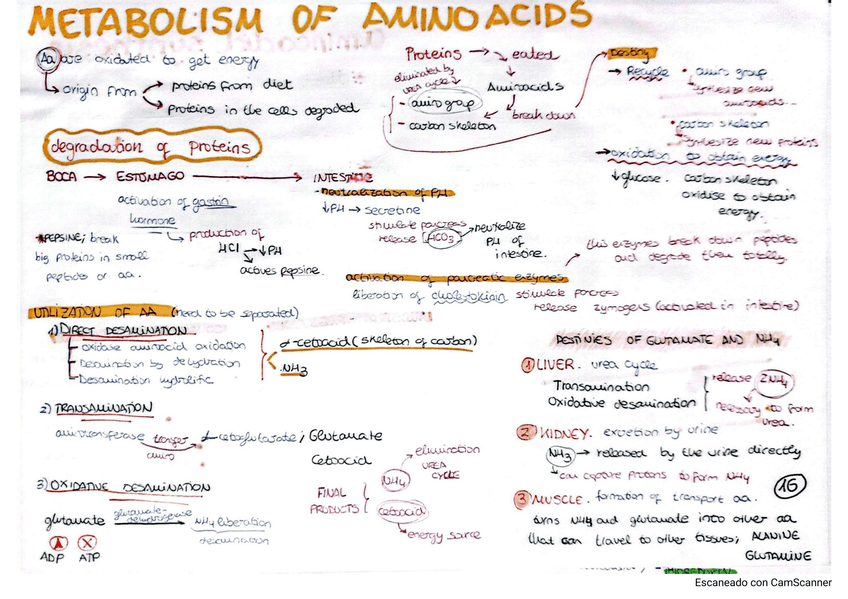 METABOLISM OF AMINOACIDS
Aa are oxidated to get energy
origin from
proteins from diet
proteins in the cells degraded
Proteins → eated
eliminated by
urea cycle
Aminoacids
- amino group
- carbon skeleton
break down
Destiny
→ Recycle
• amino group
synthesize new
aminoacids
• carbon skeleton
synthesize new proteins
→ oxidation to obtain energy
↓ glucose. carbon skeleton
oxidise to obtain
energy.
degradation of proteins
BOCA → ESTÓMAGO → INTESTINE
activation of gastrin
hormone
production of
HCl → ↓PH
actives pepsine.
PEPSINE; break
big proteins in small
peptides or aa.
- neutralization of PH
↓PH → secretine
stimulate pancreas
release HCO3
neutralize
PH of
intestine.
activation of pancreatic enzymes
liberation of stimulate pancreas
release zymogens (activated in intestine)
this enzymes break down peptides
and degrade them totally
UTILIZATION OF AA (need to be separated)
1) DIRECT DESAMINATION
- Oxidase aminoacid oxidation
- Desamination by dehydration
- Desamination hydrolitic
α-cetoacid (skeleton of carbon)
NH3
2) TRANSAMINATION
aminotransferase transfer
amino
α-cetoglutarate; Glutamate
Cetoacid
3) OXIDATIVE DESAMINATION
glutamate
glutamate-
dehydrogenase
NH4 liberation
desamination
ADP ATP
FINAL
PRODUCTS
NH4
elimination
UREA
CYCLE
cetoacid
energy source
DESTINIES OF GLUTAMATE AND NH4
1 LIVER. urea cycle
Transamination
Oxidative desamination
release 2NH4
necessary to form
urea.
2 KIDNEY. excretion by urine
NH3 → released by the urine directly
can capture protons to form NH4
3 MUSCLE. formation of transport aa.
16
turns NH4 and glutamate into other aa
that can travel to other tissues; ALANINE
GLUTAMINE
Escaneado con CamScanner